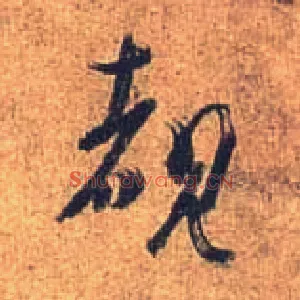 覩
Shufawang.CN